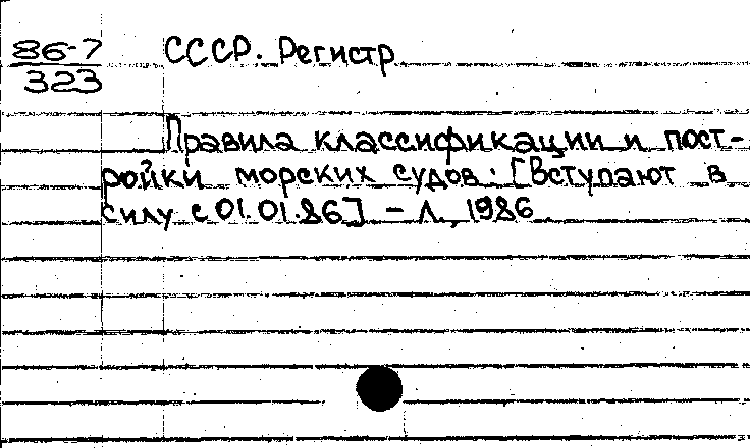 86-7 СССР. Регистр
323
Правила классификации и пост-
ройки морских судов: [Вступают в
силу с 01.01.86] - Л., 1986